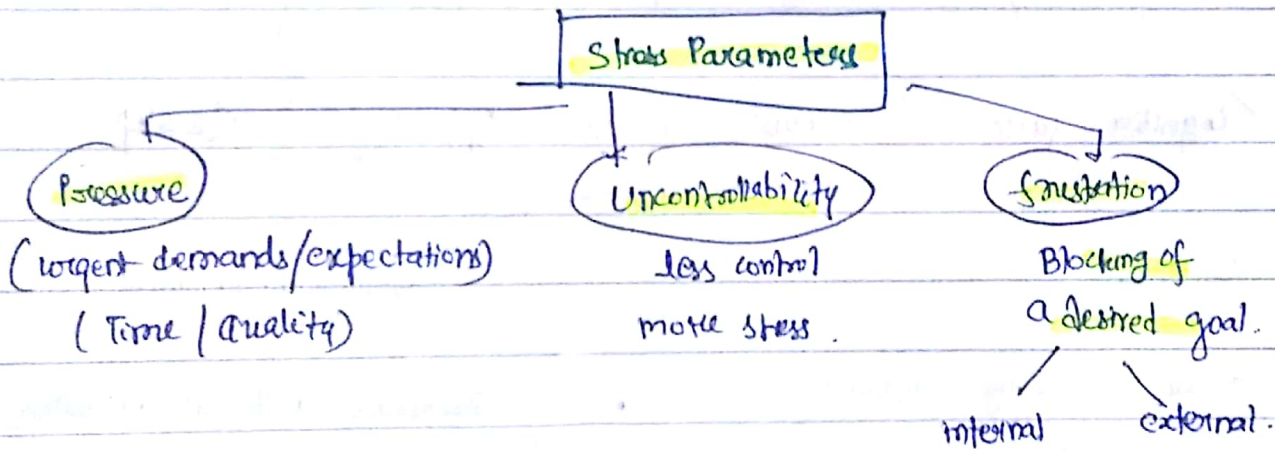 Stress Parameters
Pressure
(urgent demands/expectations)
(Time / Quality)
Uncontrollability
less control
more stress.
frustration
Blocking of
a desired goal.
internal
external.